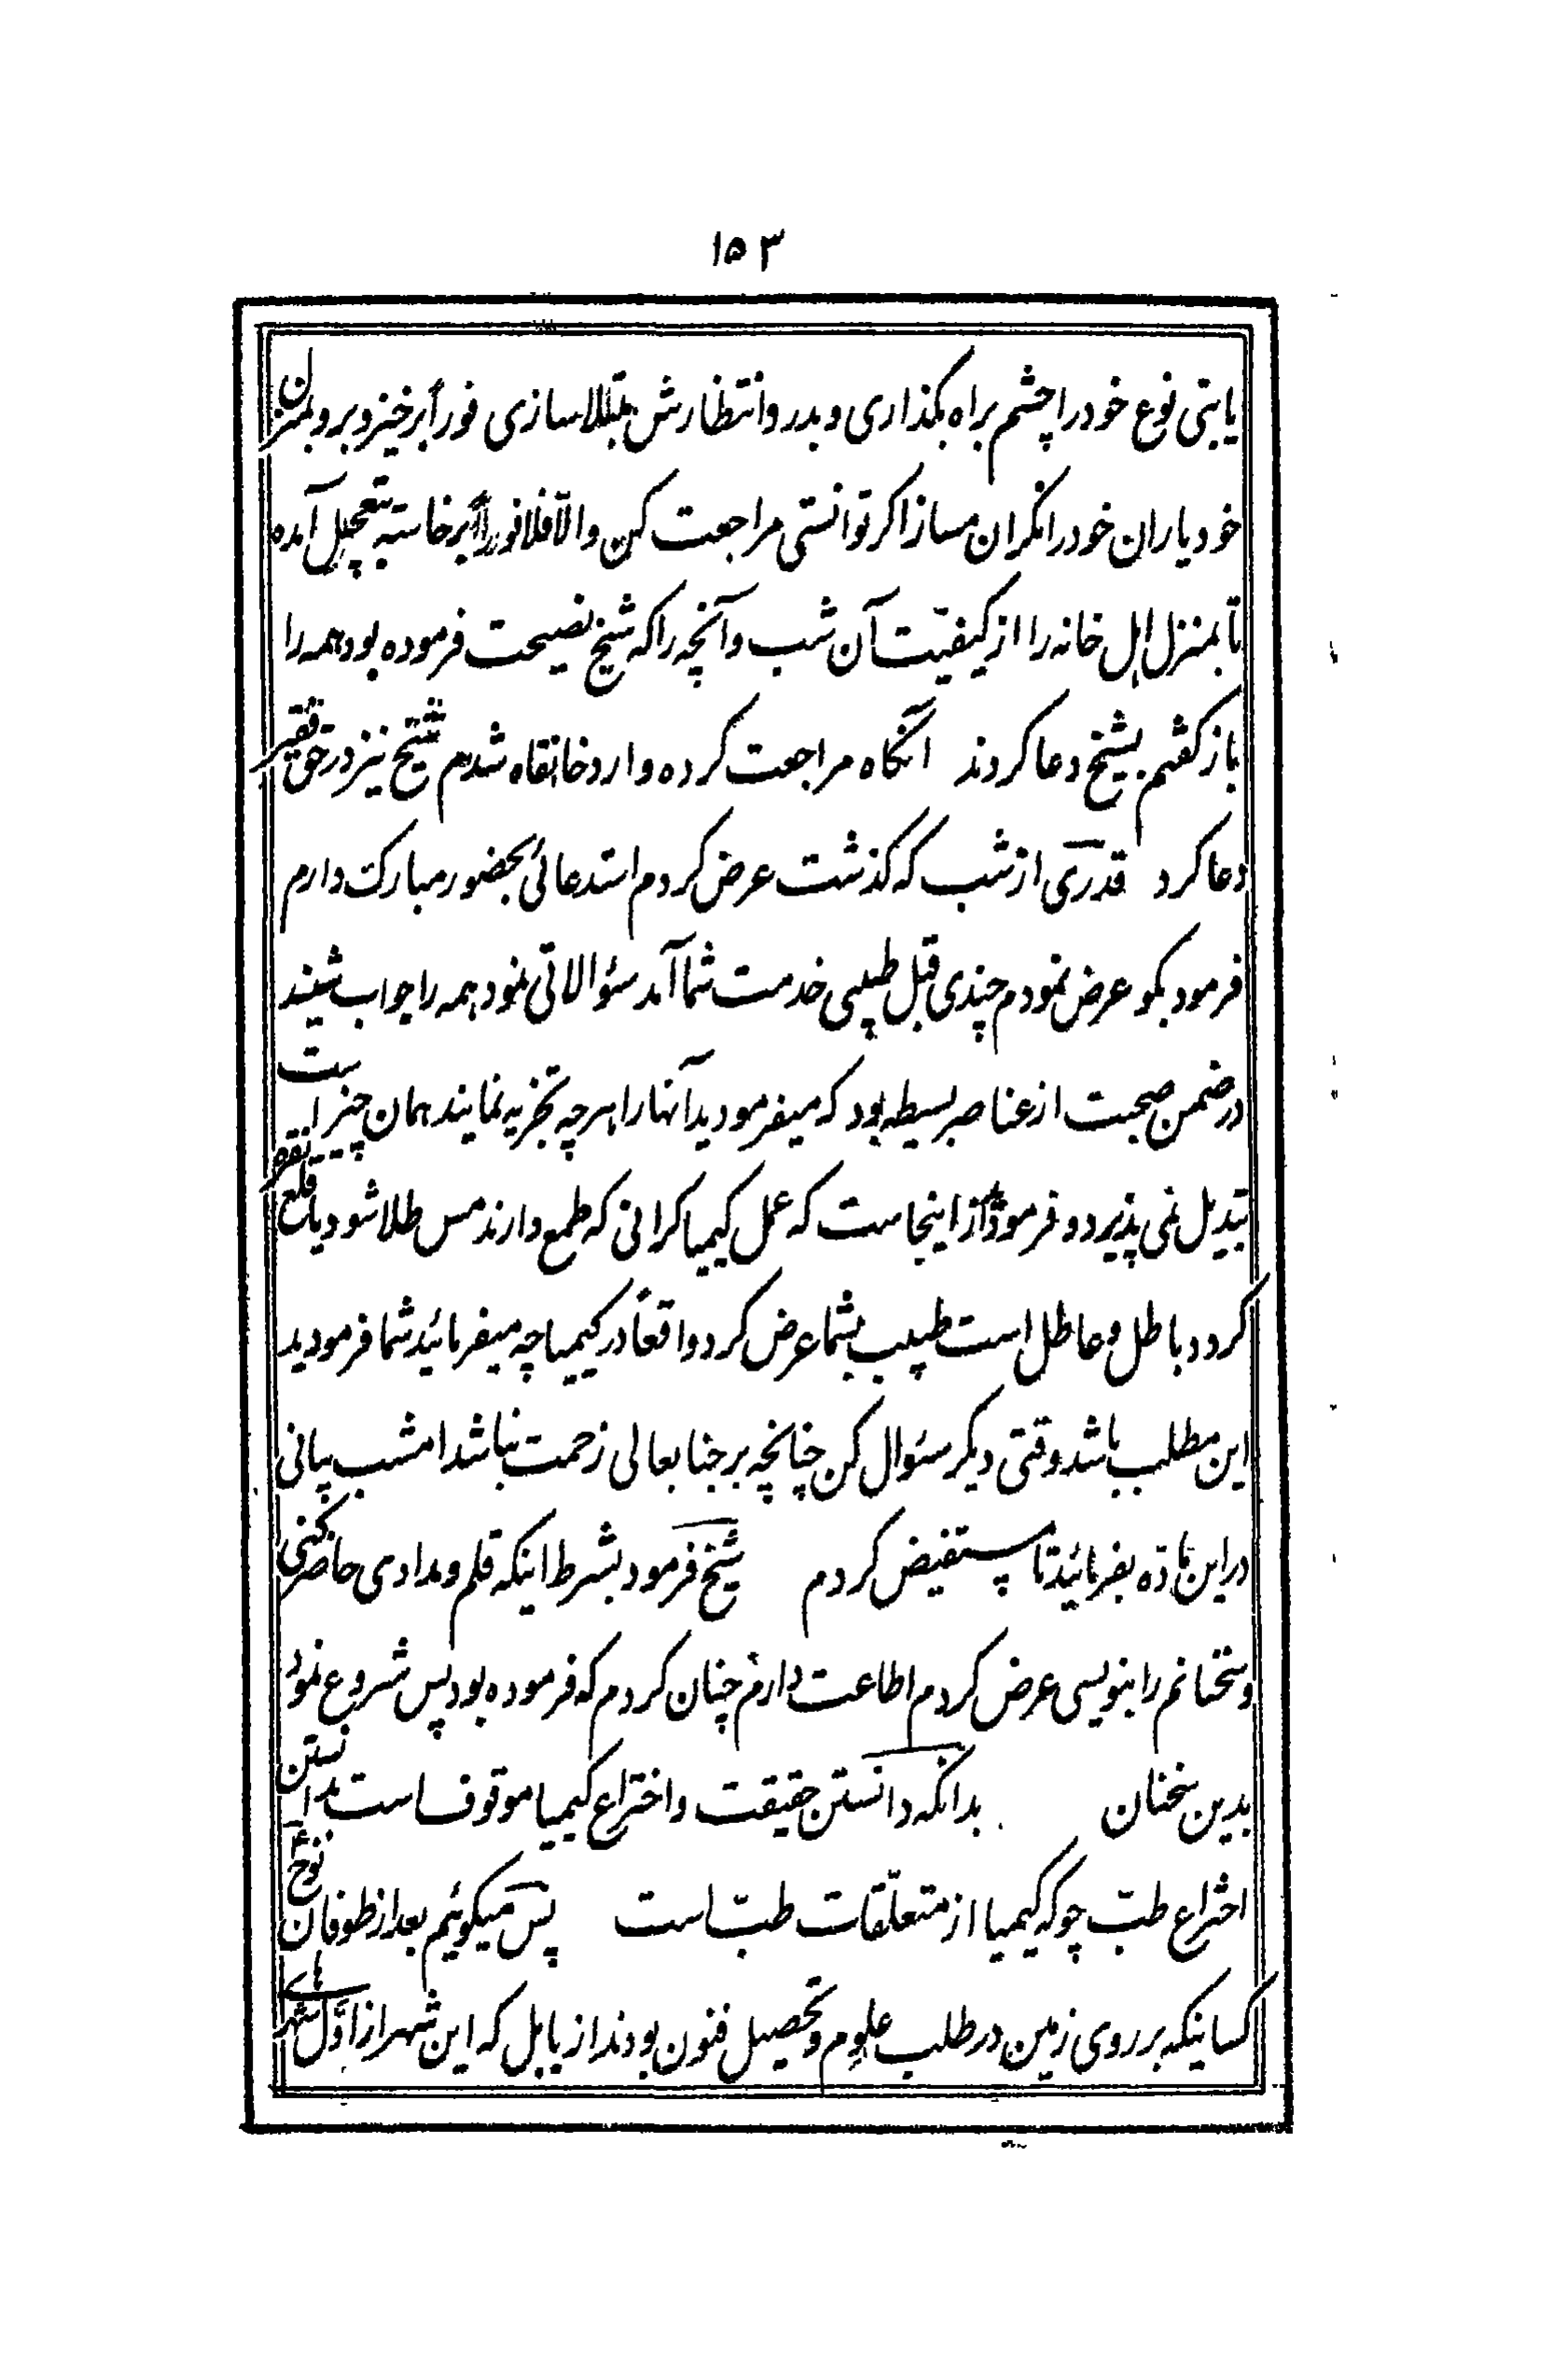 ۱۵۳
یا بنی نوع خود را چشم براه بگذاری و بدرد انتظارش مبتلا سازی فوراً برخیز و برو بمنزل
خود یاران خود را نگران مساز اگر توانستی مراجعت کن والّا فلا فوراً برخاسته بتعجیل آمده
تا بمنزل اهل خانه را از کیفیّت آن شب و آنچه را که شیخ نصیحت فرموده بود همه را
باز گفتم بشیخ دعا کردند آنگاه مراجعت کرده وارد خانقاه شدم شیخ نیز در حق فقیر
دعا کرد قدری از شب که گذشت عرض کردم استدعائی بحضور مبارک دارم
فرمود بگو عرض نمودم چندی قبل طبیبی خدمت شما آمد سئوالاتی نمود همه را جواب شنید
در ضمن صحبت از عناصر بسیطه بود که میفرمودید آنها را هر چه تجزیه نمایند همان چیز است
تبدیل نمی پذیرد و فرمودید از اینجاست که عمل کیمیاگرانی که طمع دارند مس طلا شود یا قلع نقره
گردد باطل و عاطل است طبیب بشما عرض کرد واقعاً در کیمیا چه میفرمائید شما فرمودید
این مطلب باشد وقتی دیگر سئوال کن چنانچه بر جنابعالی زحمت نباشد امشب بیانی
در این مادّه بفرمائید تا مستفیض گردم شیخ فرمود بشرط اینکه قلم و مدادی حاضر کنی
و سخنانم را بنویسی عرض کردم اطاعت دارم چنان کردم که فرموده بود پس شروع نمود
بدین سخنان بدانکه دانستن حقیقت و اختراع کیمیا موقوف است بدانستن
اختراع طبّ چو که کیمیا از متعلّقات طبّ است پس میگوئیم بعد از طوفان نوح ع
کسانیکه بر روی زمین در طلب علوم و تحصیل فنون بودند از بابل که این شهر از اوّل شهرهای